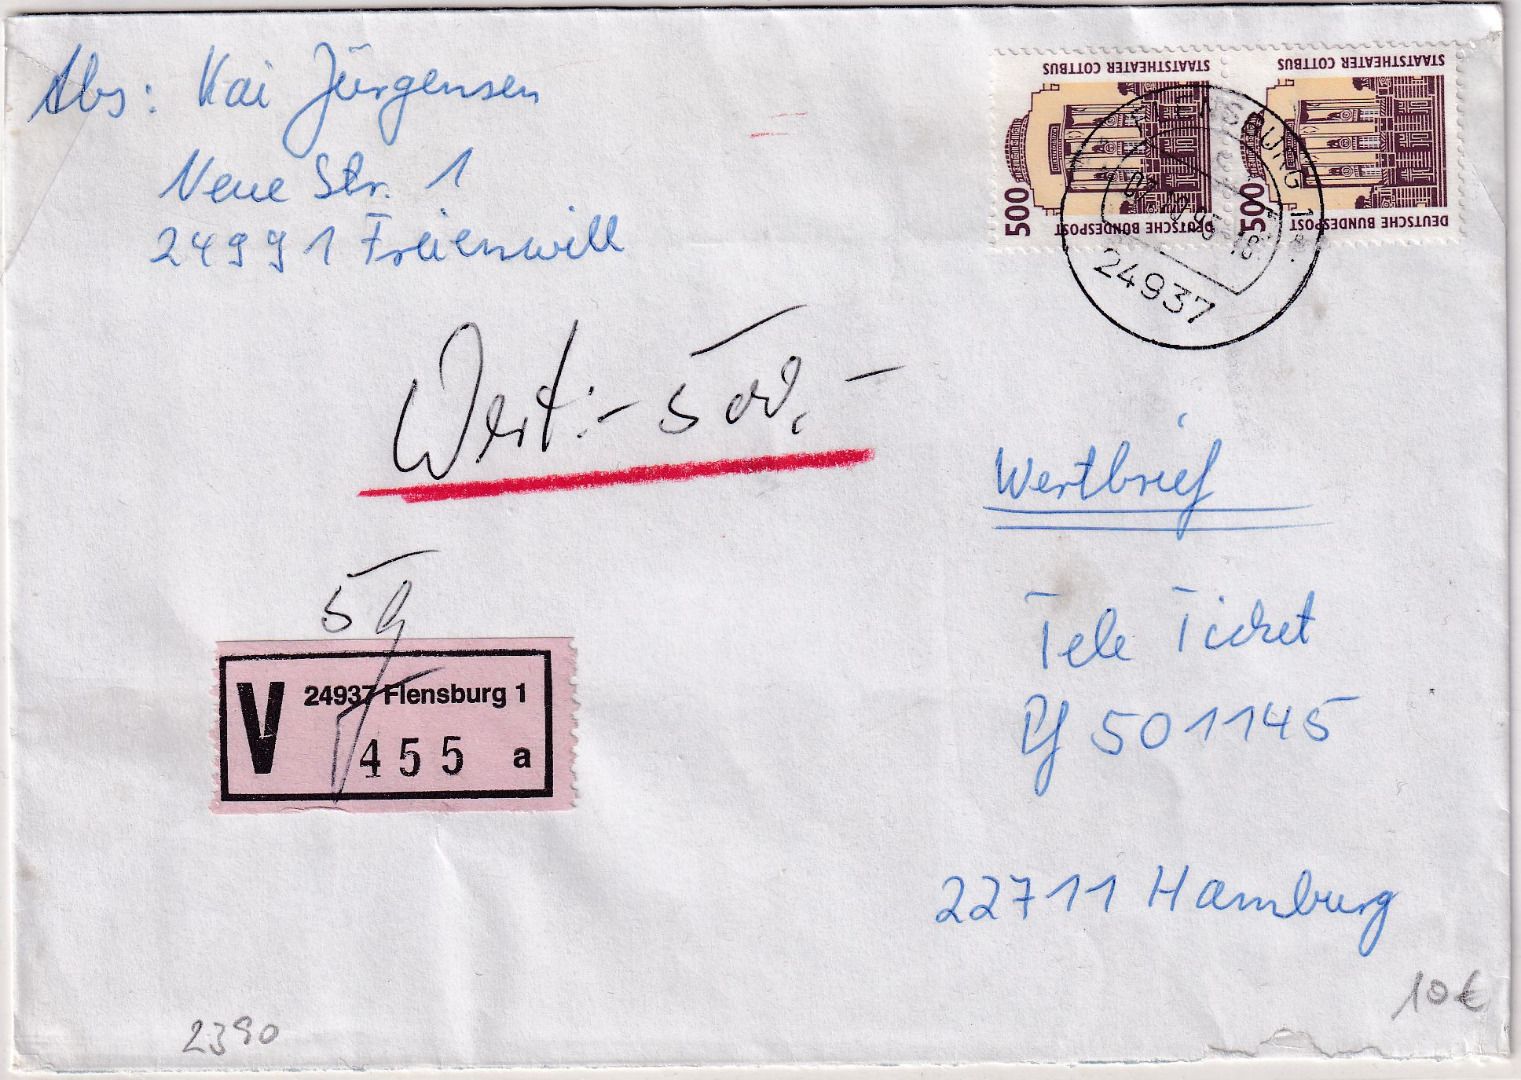 Abs: Kai Jürgensen
Neue Str. 1
24991 Freienwill
STAATSTHEATER COTTBUS
500
DEUTSCHE BUNDESPOST
STAATSTHEATER COTTBUS
500
DEUTSCHE BUNDESPOST
FLENSBURG 1
24937
Wert:- 500,-
Wertbrief
5g
V 24937 Flensburg 1
455 a
Tele Ticket
Pf 501145
22711 Hamburg
10€
2390